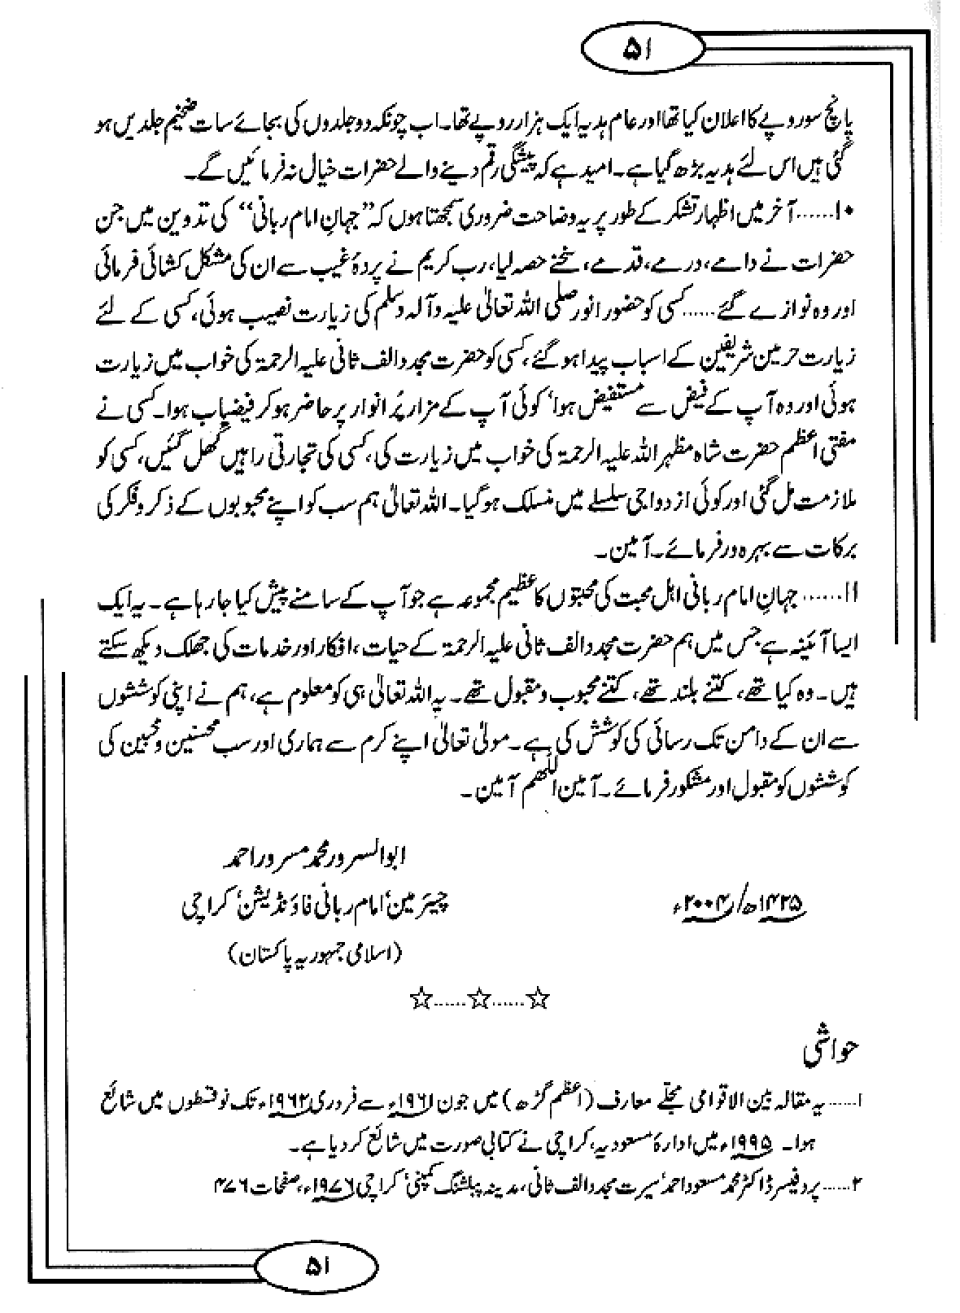 ۵۱
پانچ سو روپے کا اعلان کیا تھا اور عام ہدیہ ایک ہزار روپے تھا۔ اب چونکہ دو جلدوں کی بجائے سات ضخیم جلدیں ہو
گئی ہیں اس لئے ہدیہ بڑھ گیا ہے۔ امید ہے کہ پیشگی رقم دینے والے حضرات خیال نہ فرمائیں گے۔
۱۰...... آخر میں اظہار تشکر کے طور پر یہ وضاحت ضروری سمجھتا ہوں کہ ”جہانِ امام ربانی“ کی تدوین میں جن
حضرات نے دامے، درمے، قدمے، سخنے حصہ لیا، رب کریم نے پردۂ غیب سے ان کی مشکل کشائی فرمائی
اور وہ نوازے گئے...... کسی کو حضور انور صلی اللہ تعالیٰ علیہ وآلہ وسلم کی زیارت نصیب ہوئی، کسی کے لئے
زیارت حرمین شریفین کے اسباب پیدا ہو گئے، کسی کو حضرت مجدد الف ثانی علیہ الرحمۃ کی خواب میں زیارت
ہوئی اور وہ آپ کے فیض سے مستفیض ہوا، کوئی آپ کے مزار پُر انوار پر حاضر ہو کر فیضیاب ہوا۔ کسی نے
مفتی اعظم حضرت شاہ مظہر اللہ علیہ الرحمۃ کی خواب میں زیارت کی، کسی کی تجارتی راہیں کھل گئیں، کسی کو
ملازمت مل گئی اور کوئی ازدواجی سلسلے میں منسلک ہو گیا۔ اللہ تعالیٰ ہم سب کو اپنے محبوبوں کے ذکر و فکر کی
برکات سے بہرہ ور فرمائے۔ آمین۔
۱۱...... جہانِ امام ربانی اہل محبت کی محبتوں کا عظیم مجموعہ ہے جو آپ کے سامنے پیش کیا جا رہا ہے۔ یہ ایک
ایسا آئینہ ہے جس میں ہم حضرت مجدد الف ثانی علیہ الرحمۃ کے حیات، افکار اور خدمات کی جھلک دیکھ سکتے
ہیں۔ وہ کیا تھے، کتنے بلند تھے، کتنے محبوب و مقبول تھے۔ یہ اللہ تعالیٰ ہی کو معلوم ہے، ہم نے اپنی کوششوں
سے ان کے دامن تک رسائی کی کوشش کی ہے۔ مولیٰ تعالیٰ اپنے کرم سے ہماری اور سب محسنین و محبین کی
کوششوں کو مقبول اور مشکور فرمائے۔ آمین اللھم آمین۔
ابوالسرور محمد مسرور احمد
۱۴۲۵ھ/۲۰۰۴ء
چیئرمین، امام ربانی فاؤنڈیشن، کراچی
(اسلامی جمہوریہ پاکستان)
☆......☆......☆
حواشی
۱...... یہ مقالہ بین الاقوامی مجلّے معارف (اعظم گڑھ) میں جون ۱۹۶۱ء سے فروری ۱۹۶۲ء تک نو قسطوں میں شائع
ہوا۔ ۱۹۹۵ء میں ادارۂ مسعودیہ، کراچی نے کتابی صورت میں شائع کر دیا ہے۔
۲...... پروفیسر ڈاکٹر محمد مسعود احمد، سیرت مجدد الف ثانی، مدینہ پبلشنگ کمپنی، کراچی ۱۹۷۶ء، صفحات ۴۷۶
۵۱